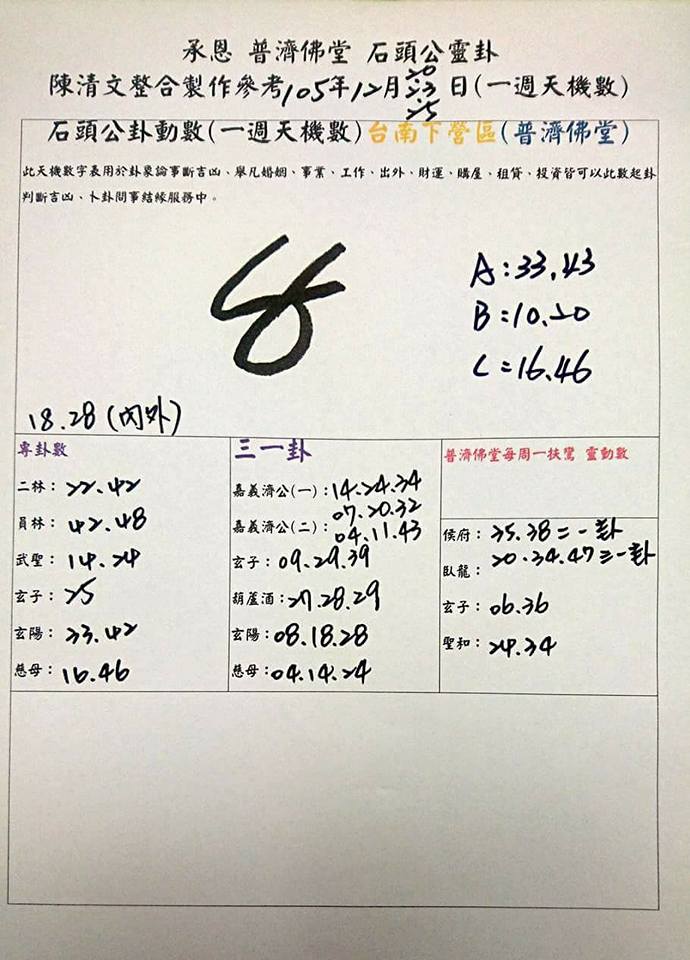 承恩 普濟佛堂 石頭公靈卦
陳清文整合製作參考105年12月20.23.25日(一週天機數)
石頭公卦動數(一週天機數)台南下營區(普濟佛堂)
此天機數字表用於卦象論事斷吉凶、舉凡婚姻、事業、工作、出外、財運、購屋、租賃、投資皆可以此數起卦
判斷吉凶、卜卦問事結緣服務中。
A:33.43
B:10.20
C:16.46
18.28(內外)
專卦數
二林:22.42
員林:42.48
武聖:14.24
玄子:25
玄陽:33.42
慈母:16.46
三一卦
嘉義濟公(一):14.24.34
07.20.32
嘉義濟公(二):04.11.43
玄子:09.29.39
葫蘆酒:27.28.29
玄陽:08.18.28
慈母:04.14.24
普濟佛堂每周一扶鸞 靈動數
侯府:35.38二一卦
臥龍:20.34.47三一卦
玄子:06.36
聖和:24.34